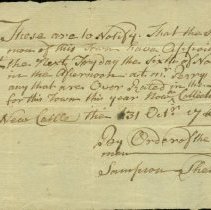 These are to Notify. That the S
men of this Town have Appoi
the Next, Fryday the Sixth of No
in the Afternoon at mr. Perry
any that are Over Rated in the
for this Town this year Now Collect
New Castle the 31 Octr. 174
By Order of the
men
Sampson Shea